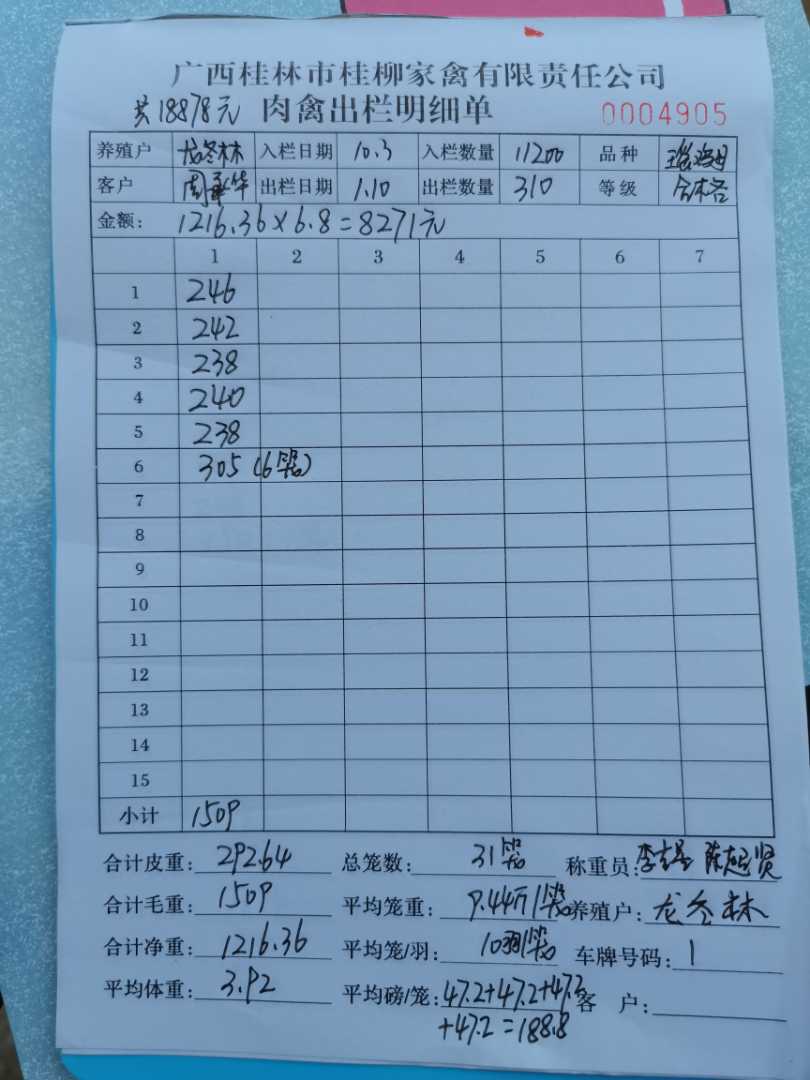 广西桂林市桂柳家禽有限责任公司
共18878元 肉禽出栏明细单 0004905
养殖户 龙冬林 入栏日期 10.3 入栏数量 11200 品种
客户 周 华 出栏日期 1.10 出栏数量 310 等级 合格
金额: 1216.36×6.8=8271元
1 2 3 4 5 6 7
1 246
2 242
3 238
4 240
5 238
6 305(6笼)
7
8
9
10
11
12
13
14
15
小计 1509
合计皮重: 292.64 总笼数: 31笼 称重员:
合计毛重: 1509 平均笼重: 9.44斤/笼 养殖户: 龙冬林
合计净重: 1216.36 平均笼/羽: 10羽/笼 车牌号码: 1
平均体重: 3.92 平均磅/笼: 47.2+47.2+47.2 客 户:
+47.2=188.8